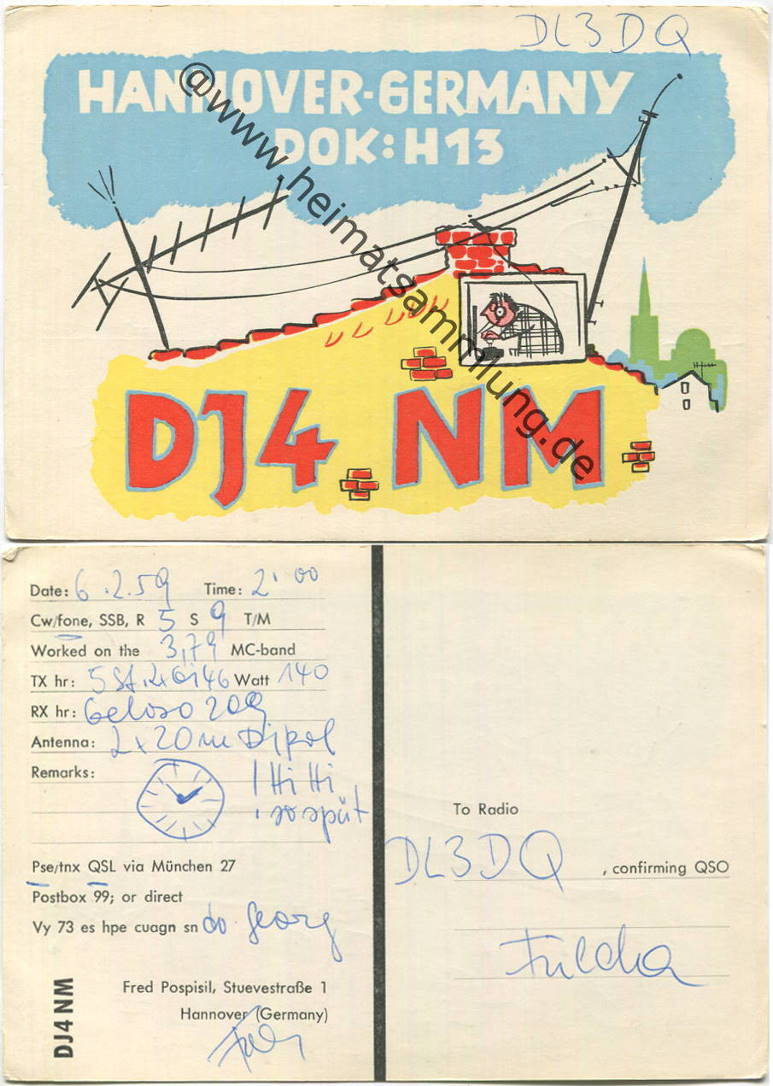 DL3DQ
HANNOVER-GERMANY
DOK:H13
@www.heimatsammlung.de
DJ4 NM
Date: 6.2.59 Time: 2.00
Cw/fone, SSB, R 5 S 9 T/M
Worked on the 3,79 MC-band
TX hr: 5St. 2x6146 Watt 140
RX hr: Geloso 209
Antenna: 2x20m Dipol
Remarks: ! Hi Hi
so spät
Pse/tnx QSL via München 27
Postbox 99; or direct
Vy 73 es hpe cuagn sn do Georg
Fred Pospisil, Stuevestraße 1
Hannover (Germany)
DJ4NM
To Radio
DL3DQ, confirming QSO
Fulda